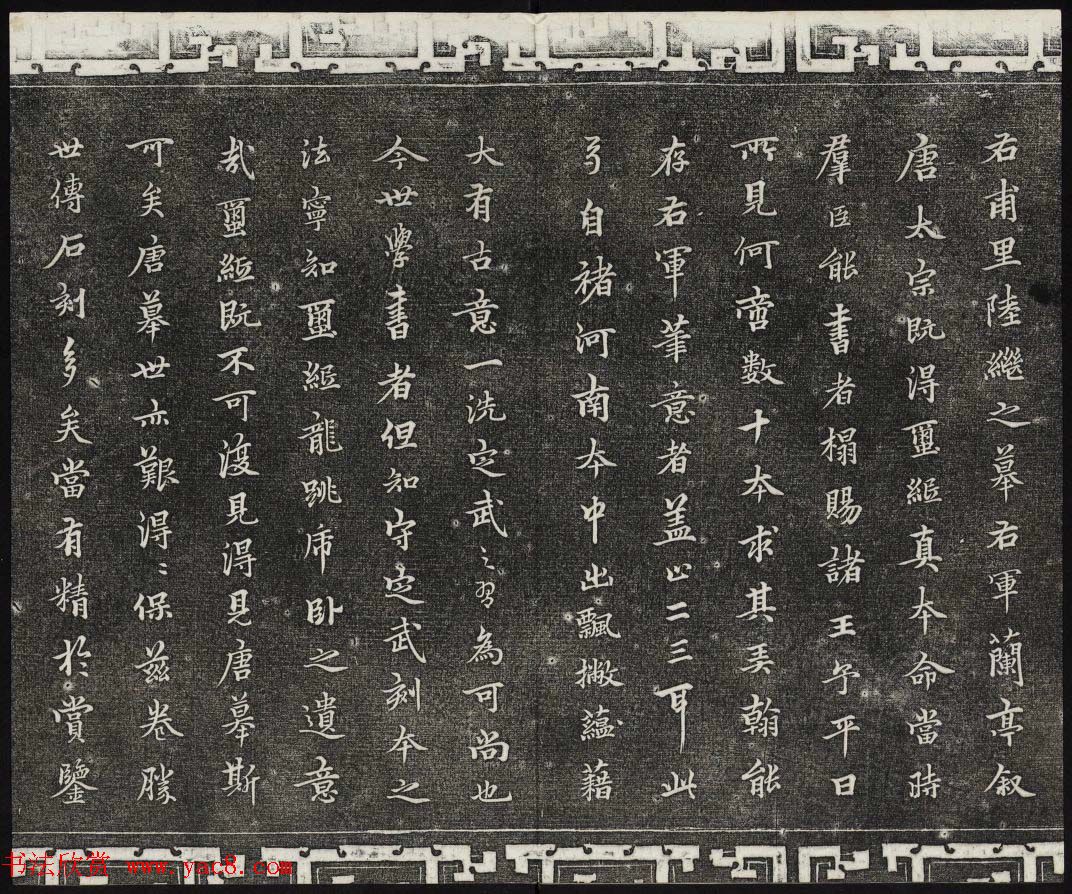 右甫里陸繼之摹右軍蘭亭叙
唐太宗既得璽縆真本命當時
羣臣能書者榻賜諸王予平日
所見何啻數十本求其美翰能
存右軍筆意者盖止二三耳此
乃自褚河南本中出飄撇蘊藉
大有古意一洗定武之習為可尚也
今世學書者但知守定武刻本之
法寧知璽縆龍跳虎卧之遺意
哉璽縆既不可復見得見唐摹斯
可矣唐摹世亦艱得得保兹卷勝
世傳石刻多矣當有精於賞鑒
书法欣赏 www.yac8.com